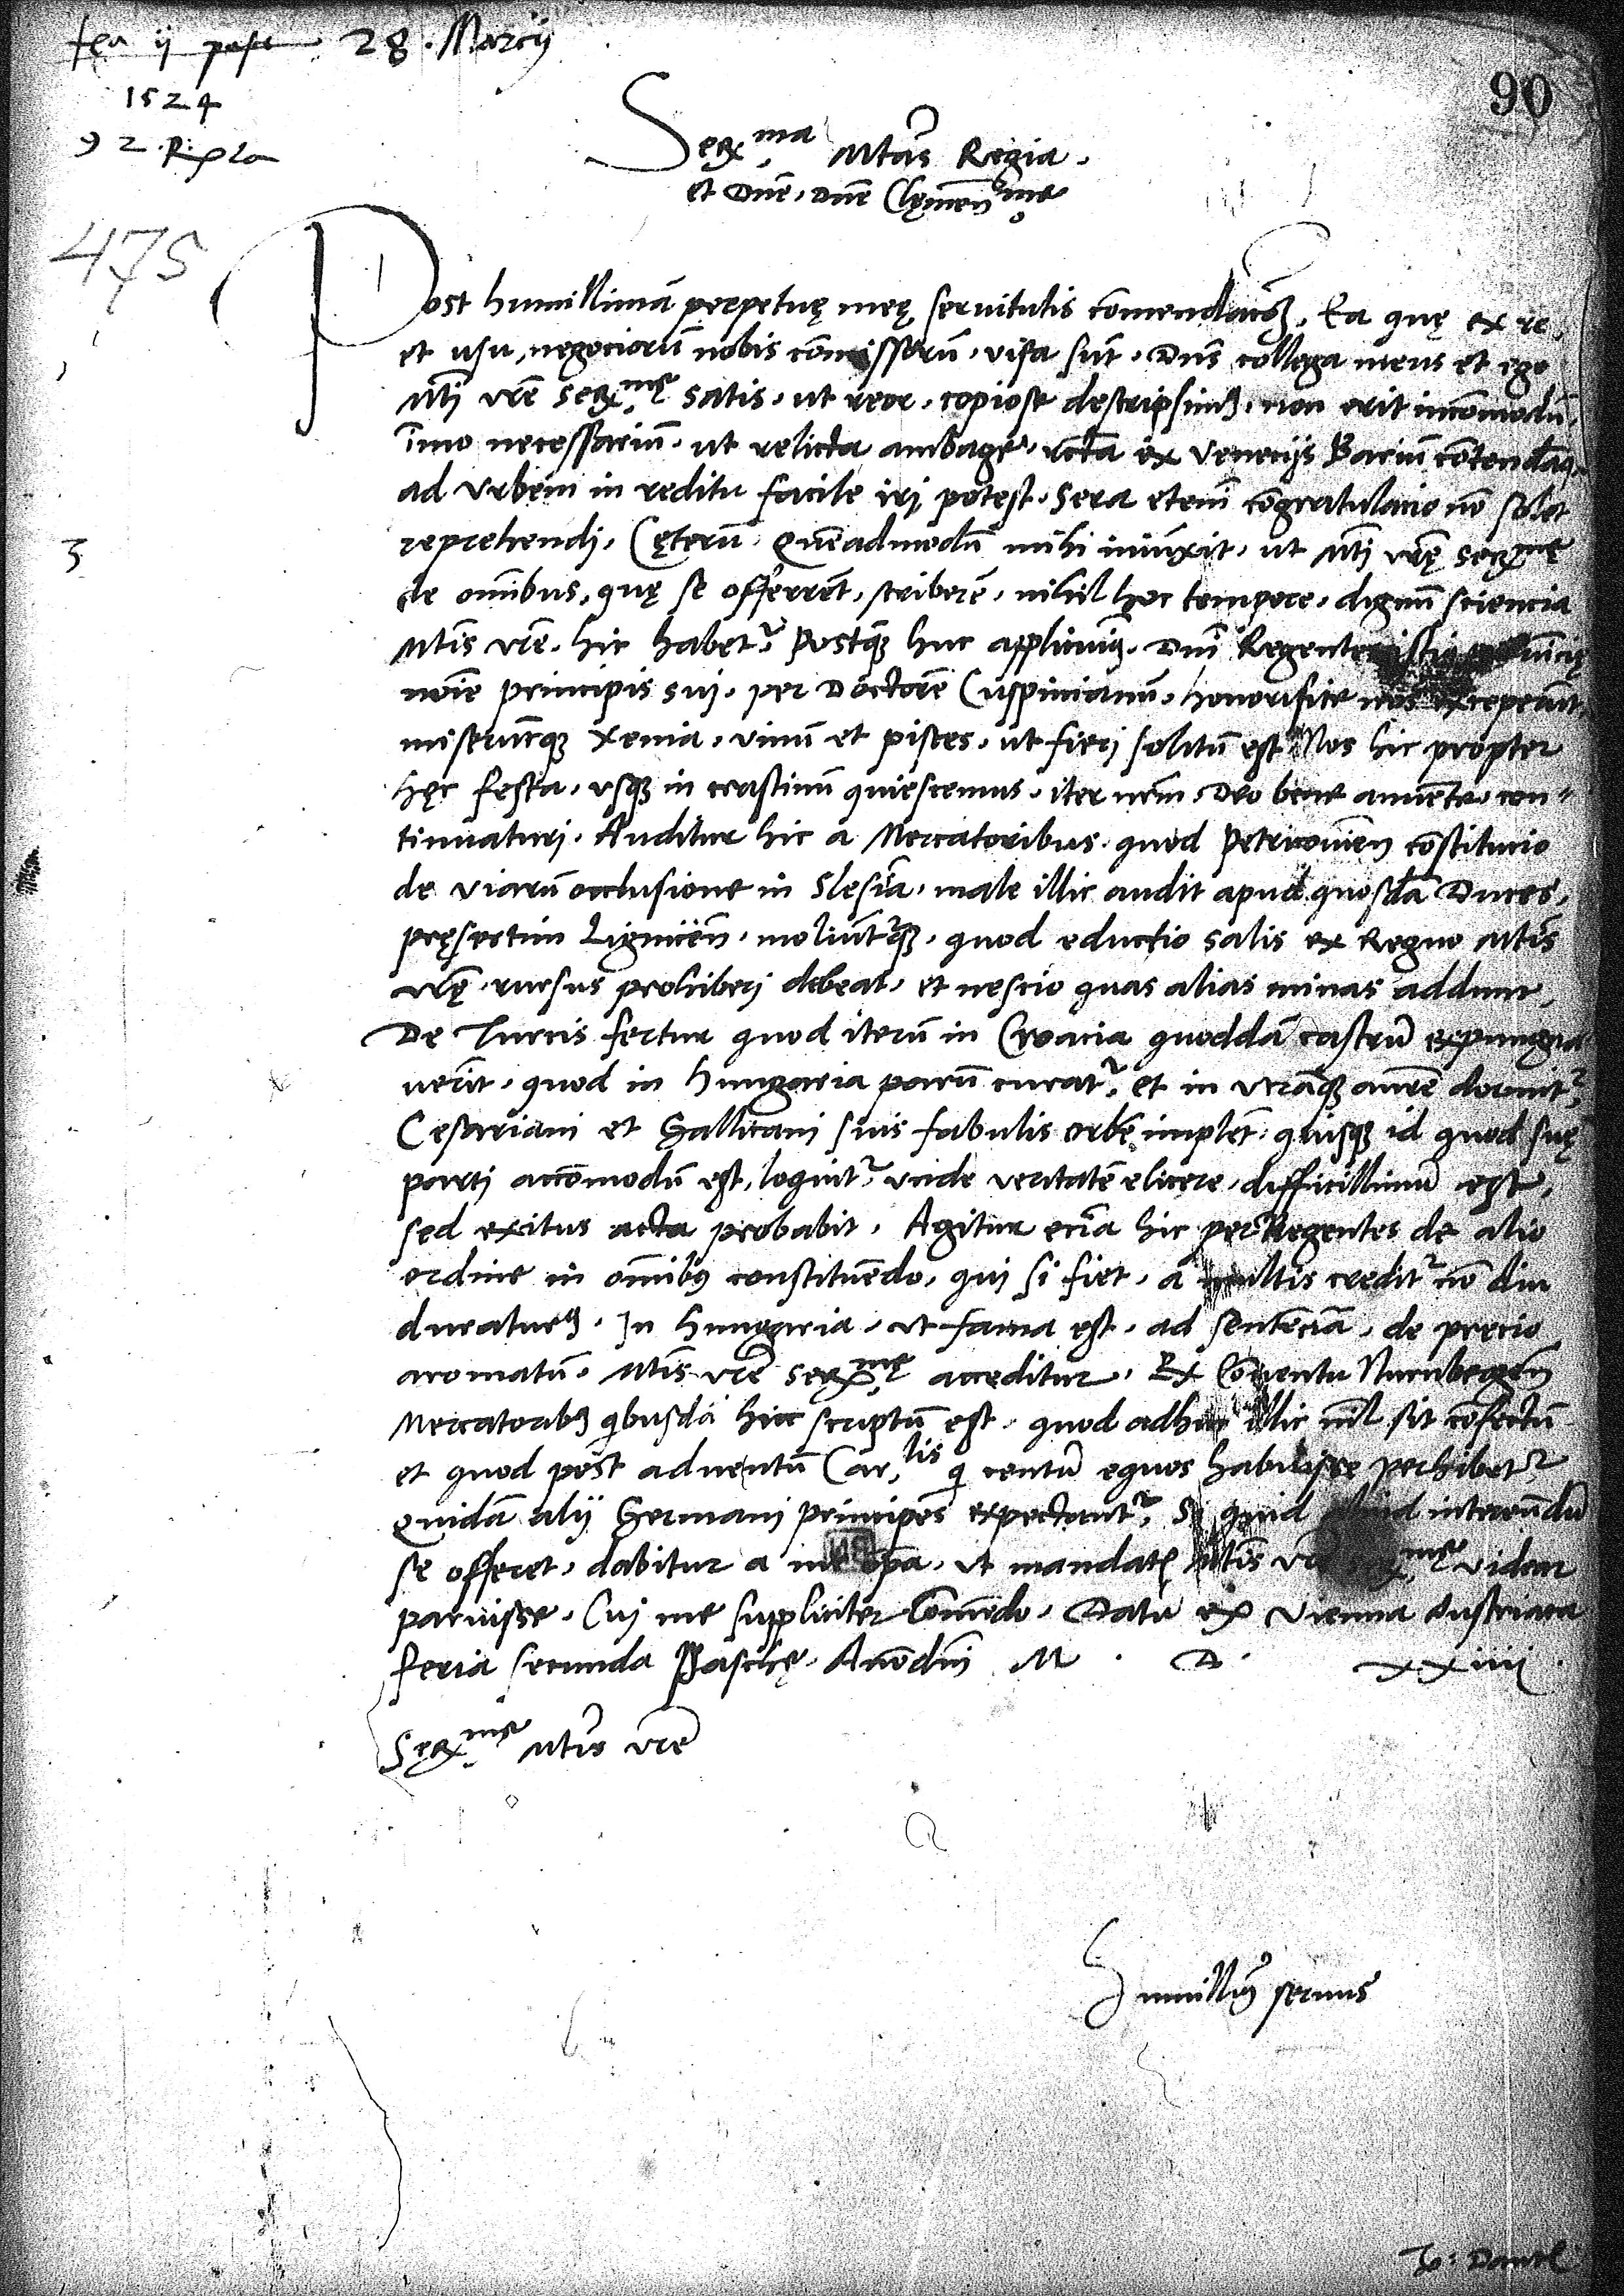 28. Marcij
1524
90
Ser.ma Mtas Regia.
et Dne, dne Clemen.me
475
Post humillimã perpetuę meę seruitutis comendacõȝ. Ea quę ex re,
et usu, negociorũ nobis comissorũ, visa sũt, Dns collega meus et ego
Mti vrẽ Ser.me satis, ut reor, copiose descripsimȝ, non erit incomodũ,
imo necessariũ, ut relicta ambage, recta ex Venecijs Bariũ contendamȝ,
ad Vrbem in reditu facile irj potest. Sera etem̃ congratulacio nõ solet
reprehendj. Cęterũ, quẽadmodũ mihi iniunxit, ut Mti vrę Ser.me
de omĩbus, quę se offerrẽt, scriberẽ, nihil hoc tempore, dignũ sciencia
Mtis vrẽ, hic habetr. Postqȝ huc applicuimȝ, Dni Regentes
noĩe principis suj, per Doctorẽ Cuspinianũ, honorifice nos exceperũt,
miserũtqȝ Xenia, vinũ et pisces, ut fierj solitũ est. Nos hic propter
hęc festa, vsqȝ in crastinũ quiescemus, iter nrm, Deo bene annuẽte, con=
tinuaturi. Auditur hic a Mercatoribus, quod Petricouien constitucio
de viarũ occlusione in Slesia, male illic audit apud quosdã Duces,
pręsertim Lignicen, moliũtrqȝ, quod eductio salis ex Regno Mtis
vrę, rursus prohiberj debeat, et nescio quas alias minas addunt.
De Turcis fertur quod iterũ in Croacia quoddã castrũ expugna
uerit, quod in Hungaria parũ curatr, et in vtrãqȝ aurẽ dormitr.
Cęsariani et Gallicani suis fabulis orbẽ implẽt, quisqȝ id quod suę
parti accomodũ est, loquitr, vnde veritatẽ elicere, difficillimũ est,
sed exitus acta probabit. Agitur eciã hic per Regentes de alio
ordine in omĩbȝ constituẽdo, qui si fiet, a multis creditr nõ diu
duraturȝ. In Hungaria, ut fama est, ad sentẽciã, de precio
aromatũ, Mtis vrẽ Ser.me acceditur. Ex Cõuentu Nurnbergen
Mercatoribȝ qbusdã huc scriptũ est, quod adhuc illic nil sit cõfectũ
et quod post aduentũ Car.lis q centũ equos habuisse perhibetr
quidã alij Germanj principes expectantr. Si quid interẽundũ
se offeret, dabitur a me opa, ut mandatis Mtis vrẽ videar
paruisse. Cuj me suppliciter Comẽdo. Datũ ex Vienna Austriaca
feria secunda Paschę, Anno dnj M. D. xxiiij.
Ser.me Mtis vrẽ
Humillimȝ seruus